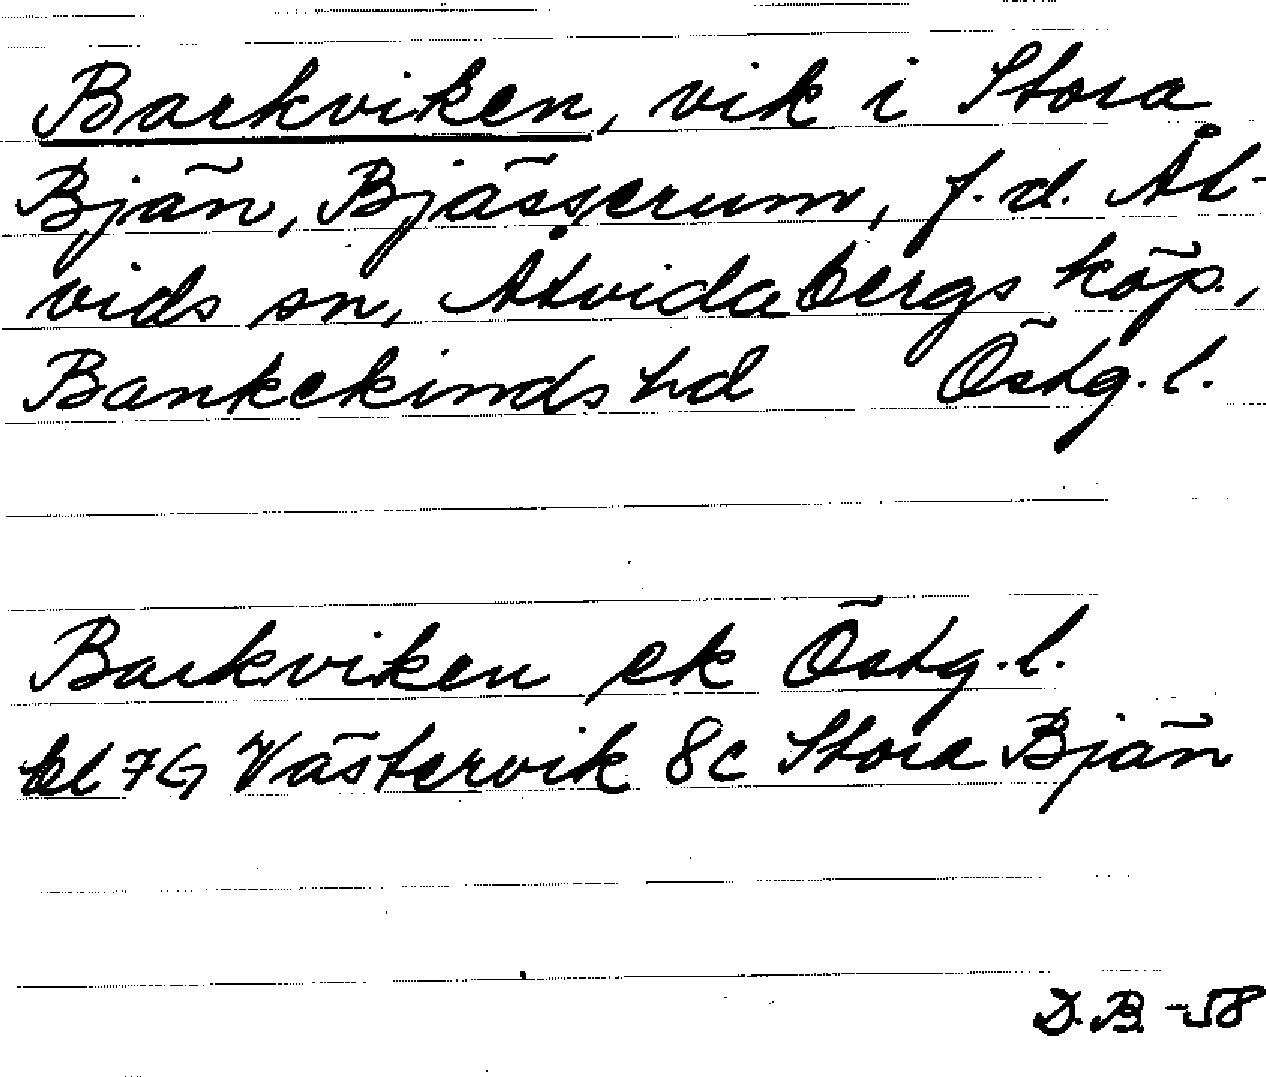 Barkviken, vik i Stora
Bjän, Bjässerum, f.d. Åt-
vids sn, Åtvidabergs köp.,
Bankekinds hd Östg.l.
Barkviken ek Östg.l.
bl 7G Västervik 8c Stora Bjän
D.B. -58